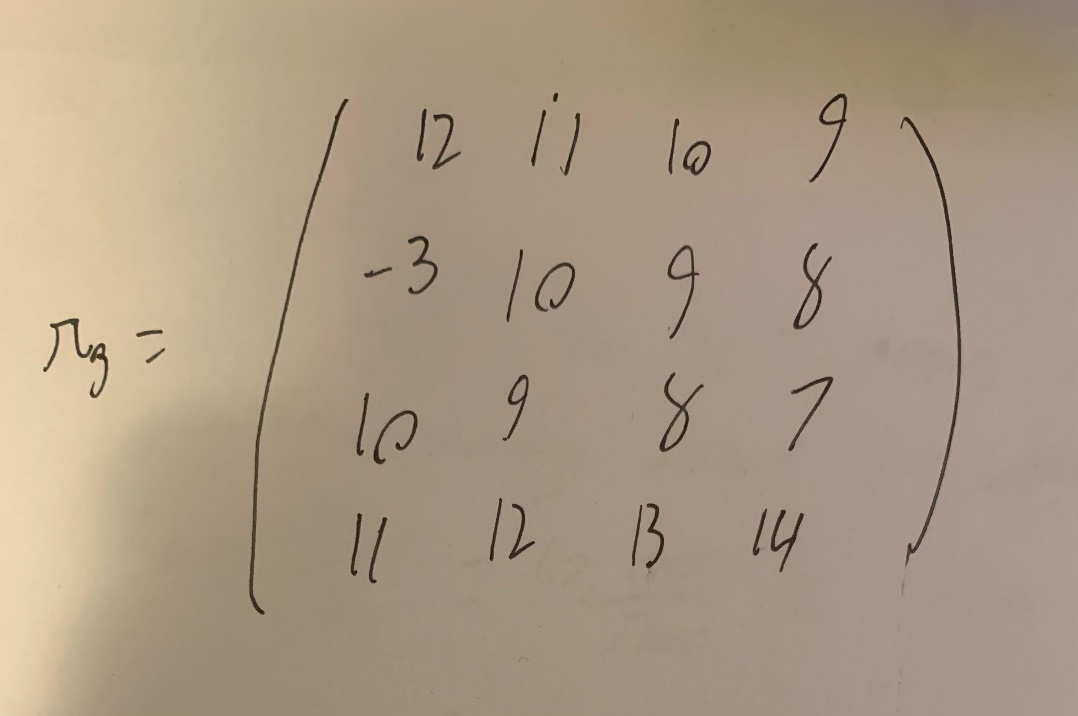 12 11 10 9
-3 10 9 8
π₃ =
10 9 8 7
11 12 13 14